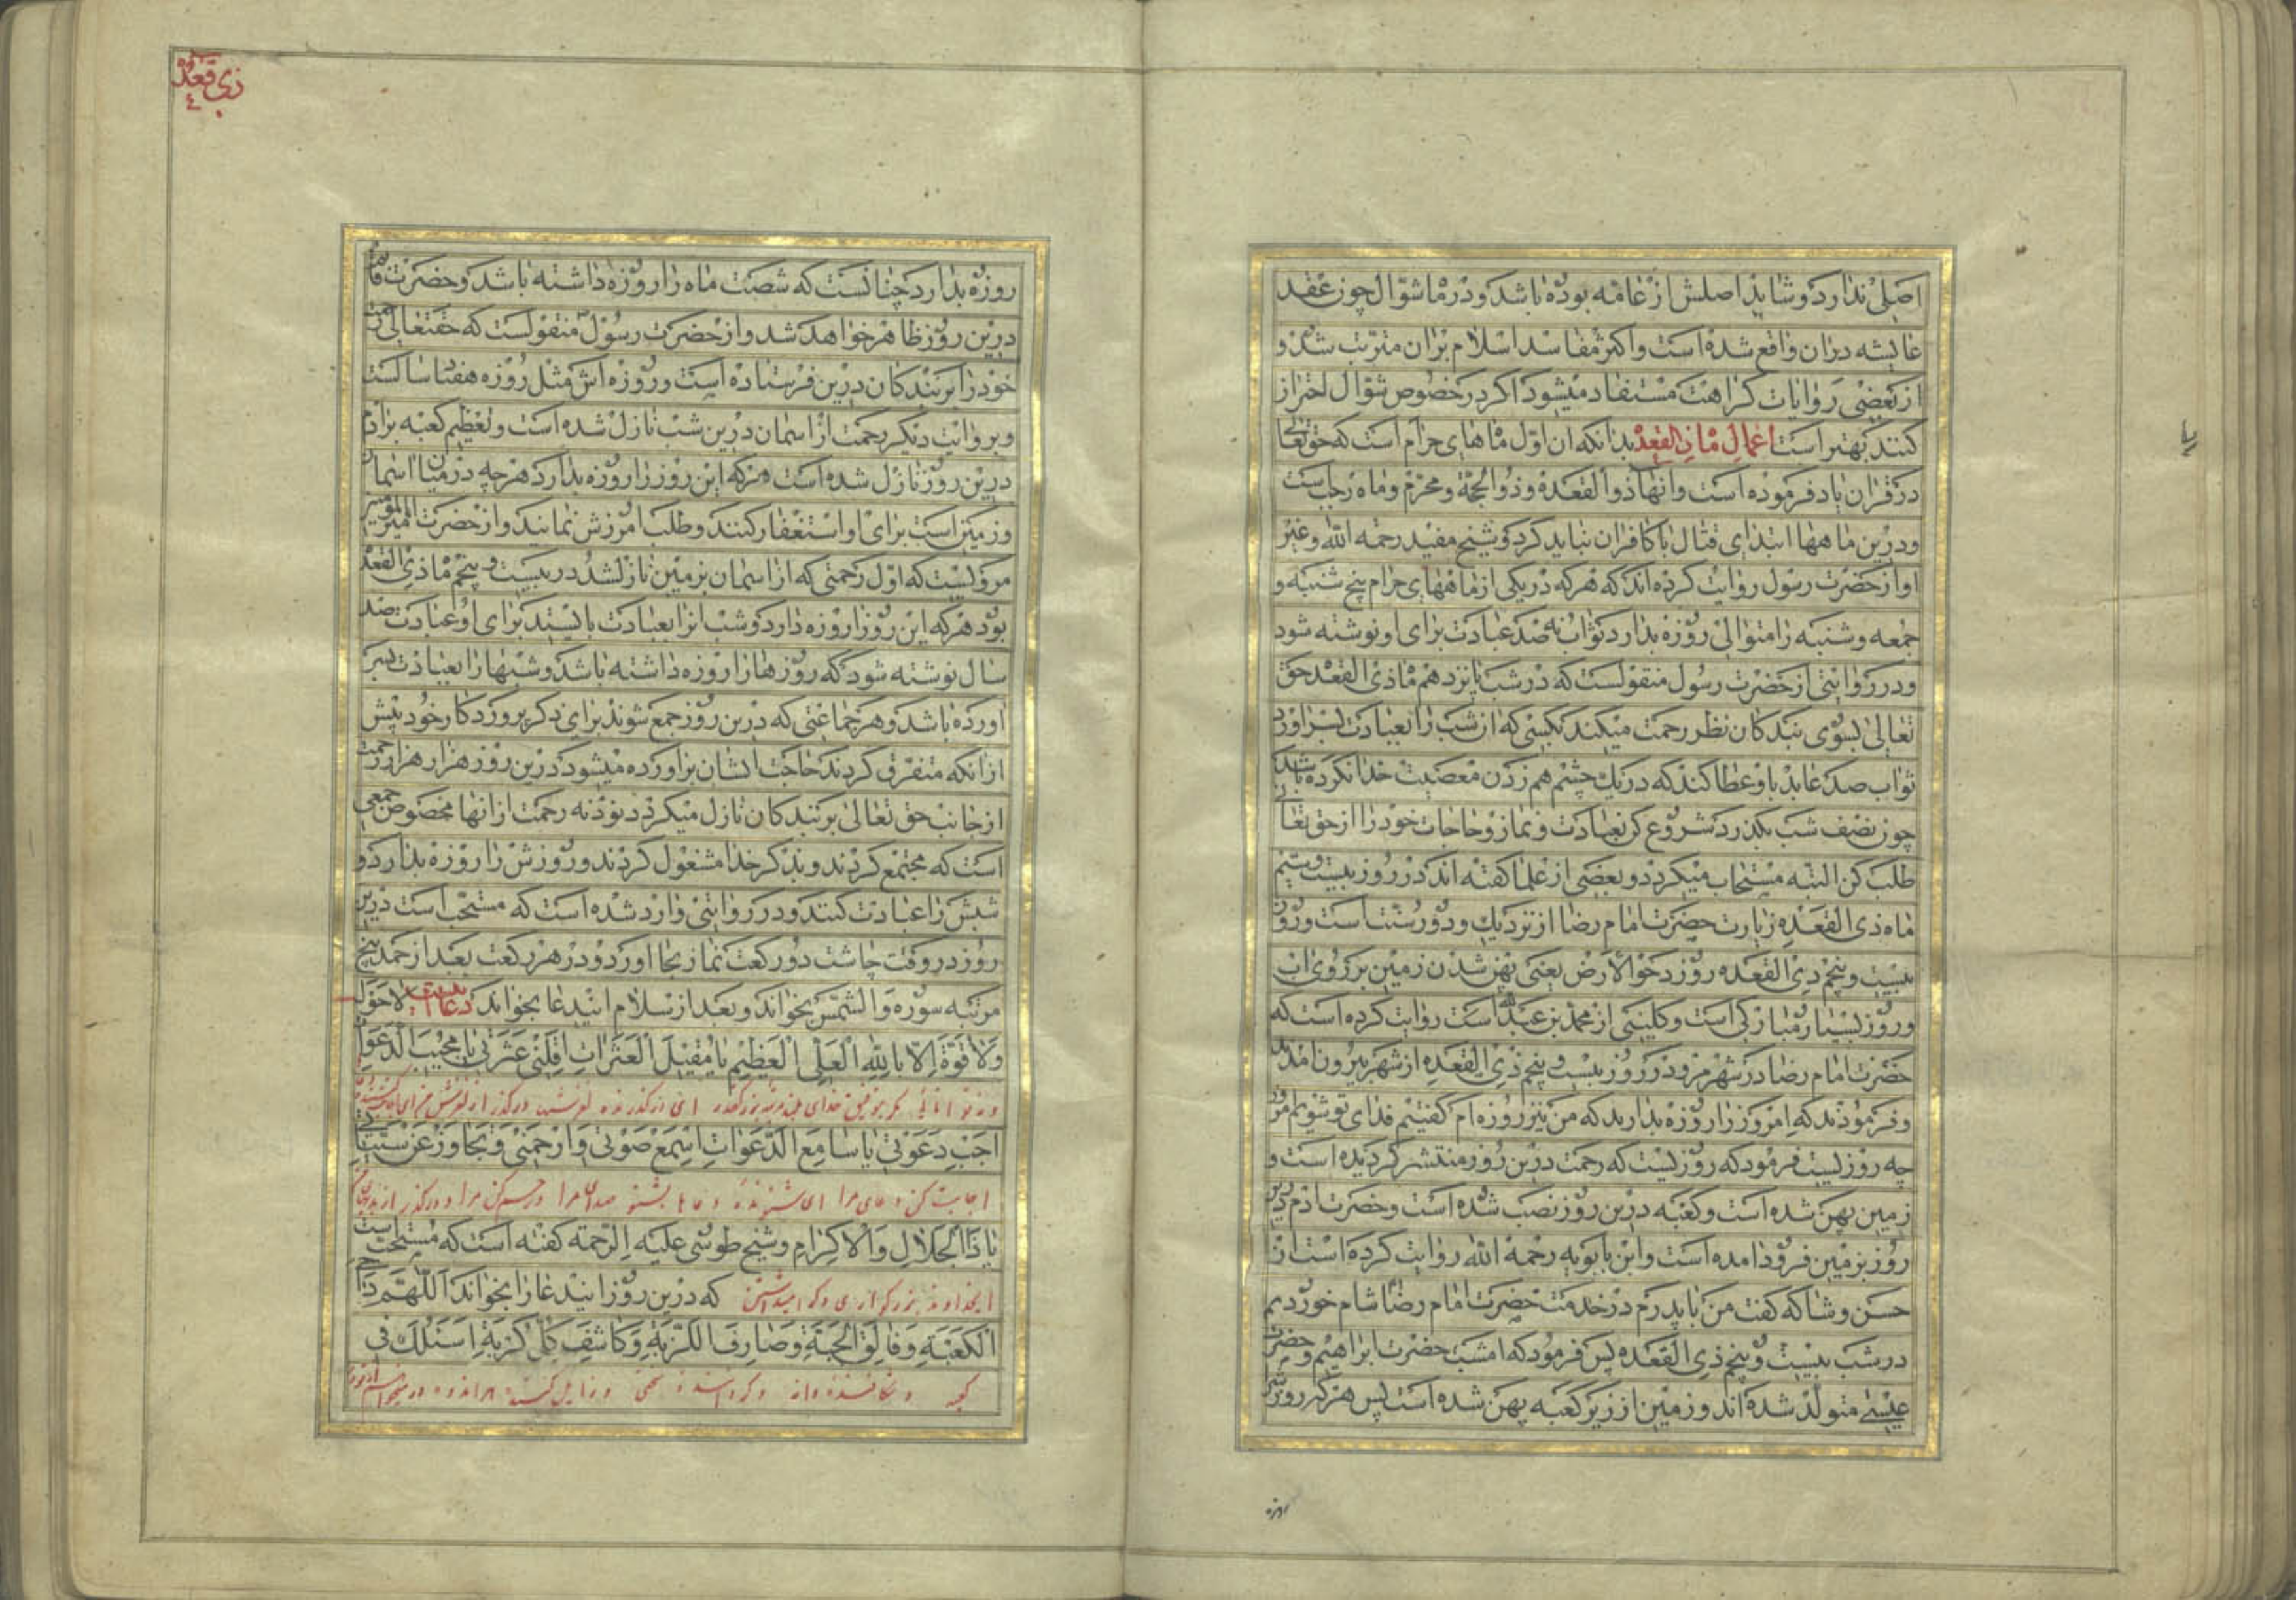 اصلی ندارد و شاید اصلش از عامه بوده باشد و در ماه شوال چون عقد
عایشه در ان واقع شده است و اکثر مفاسد اسلام بران مترتب شد و
از بعضی روایات کراهت مستفاد میشود اکر در خصوص شوال احتراز
کنند بهتر است اعمال ماه ذی القعده بدانکه ان اول ماهای حرام است که حق تعالی
در قران یاد فرموده است و انها ذوالقعده و ذوالحجة و محرم و ماه رجب است
و درین ماهها ابتدای قتال با کافران نباید کرد و شیخ مفید رحمه الله و غیر
او از حضرت رسول روایت کرده اند که هر که در یکی از ماههای حرام پنج شنبه و
جمعه و شنبه را متوالی روزه بدارد ثواب نه صد عبادت برای او نوشته شود
و در روایتی از حضرت رسول منقولست که در شب پانزدهم ماه ذی القعده حق
تعالی بسوی بندکان نظر رحمت میکند بکسی که ان شب را بعبادت بسر اورد
ثواب صد عابد باو عطا کند که در یک چشم هم زدن معصیت خدا نکرده باشد
چون نصف شب بکذرد شروع کن بعبادت و نماز و حاجات خود را از حق تعالی
طلب کن البته مستجاب میکردد و بعضی از علما کفته اند که در روز بیست و سیم
ماه ذی القعده زیارت حضرت امام رضا از نزدیک و دور سنت است و روز
بیست و پنجم ذی القعده روز دحو الارض یعنی پهن شدن زمین بر روی اب
و روز بسیار مبارکی است و کلینی از محمد بن عبد الله است روایت کرده است که
حضرت امام رضا در شهر مرو در روز بیست و پنجم ذی القعده از شهر بیرون امدند
و فرمودند که امروز را روزه بدارید که من نیز روزه ام کفتیم فدای تو شویم امروز
چه روزیست فرمود که روزیست که رحمت درین روز منتشر کردیده است و
زمین پهن شده است و کعبه درین روز نصب شده است و حضرت ادم درین
روز بزمین فرود امده است و ابن بابویه رحمه الله روایت کرده است از
حسن وشا که کفت من با پدرم در خدمت حضرت امام رضا شام خوردیم
در شب بیست و پنجم ذی القعده پس فرمود که امشب حضرت ابراهیم و حضرت
عیسی متولد شده اند و زمین از زیر کعبه پهن شده است پس هر که روزش
روزه
ذی قعده
روزه بدارد چنانست که شصت ماه را روزه داشته باشد و حضرت قائم
درین روز ظاهر خواهد شد و از حضرت رسول منقولست که حقتعالی رحمت
خود را بر بندکان درین فرستاده است و روزه اش مثل روزه هفتاد سالست
و بروایت دیکر رحمت از اسمان درین شب نازل شده است و تعظیم کعبه بر ادم
درین روز نازل شده است هر که این روز را روزه بدارد هر چه در میان اسمان
و زمین است برای او استغفار کنند و طلب امرزش نمایند و از حضرت امیر المؤمنین
مرویست که اول رحمتی که از اسمان بزمین نازلشد در بیست و پنجم ماه ذی القعده
بود هر که این روز را روزه دارد و شب انرا بعبادت بایستد برای او عبادت صد
سال نوشته شود که روزها را روزه داشته باشد و شبها را بعبادت بسر
اورده باشد و هر جماعتی که درین روز جمع شوند برای ذکر پروردکار خود پیش
از انکه متفرق کردند حاجت ایشان براورده میشود و درین روز هزار هزار رحمت
از جانب حق تعالی بر بندکان نازل میکردد نود نه رحمت از انها مخصوص جمعی
است که مجتمع کردند و بذکر خدا مشغول کردند و روزش را روزه بدارد و
شبش را عبادت کنند و در روایتی وارد شده است که مستحب است درین
روز در وقت چاشت دو رکعت نماز بجا اورد و در هر رکعت بعد از حمد پنج
مرتبه سوره و الشمس بخواند و بعد از سلام انیدعا بخواند که دعا اینست لا حول
ولا قوة الا بالله العلی العظیم یا مقیل العثرات اقلنی عثرتی یا مجیب الدعوات
اجب دعوتی یا سامع الدعوات اسمع صوتی و ارحمنی و تجاوز عن سیئاتی
اجابت کن دعای مرا ای شنونده دعاها بشنو صدای مرا و رحم کن مرا و درکذر از بدیهای
یا ذا الجلال و الاکرام و شیخ طوسی علیه الرحمة کفته است که مستحب است
ایخداوند بزرکواری و کرامی داشتن که درین روز انیدعا را بخواند اللهم داحی
الکعبة و فالق الحبة و صارف اللزبة و کاشف کل کربة اسئلک فی
کعبه و شکافنده دانه